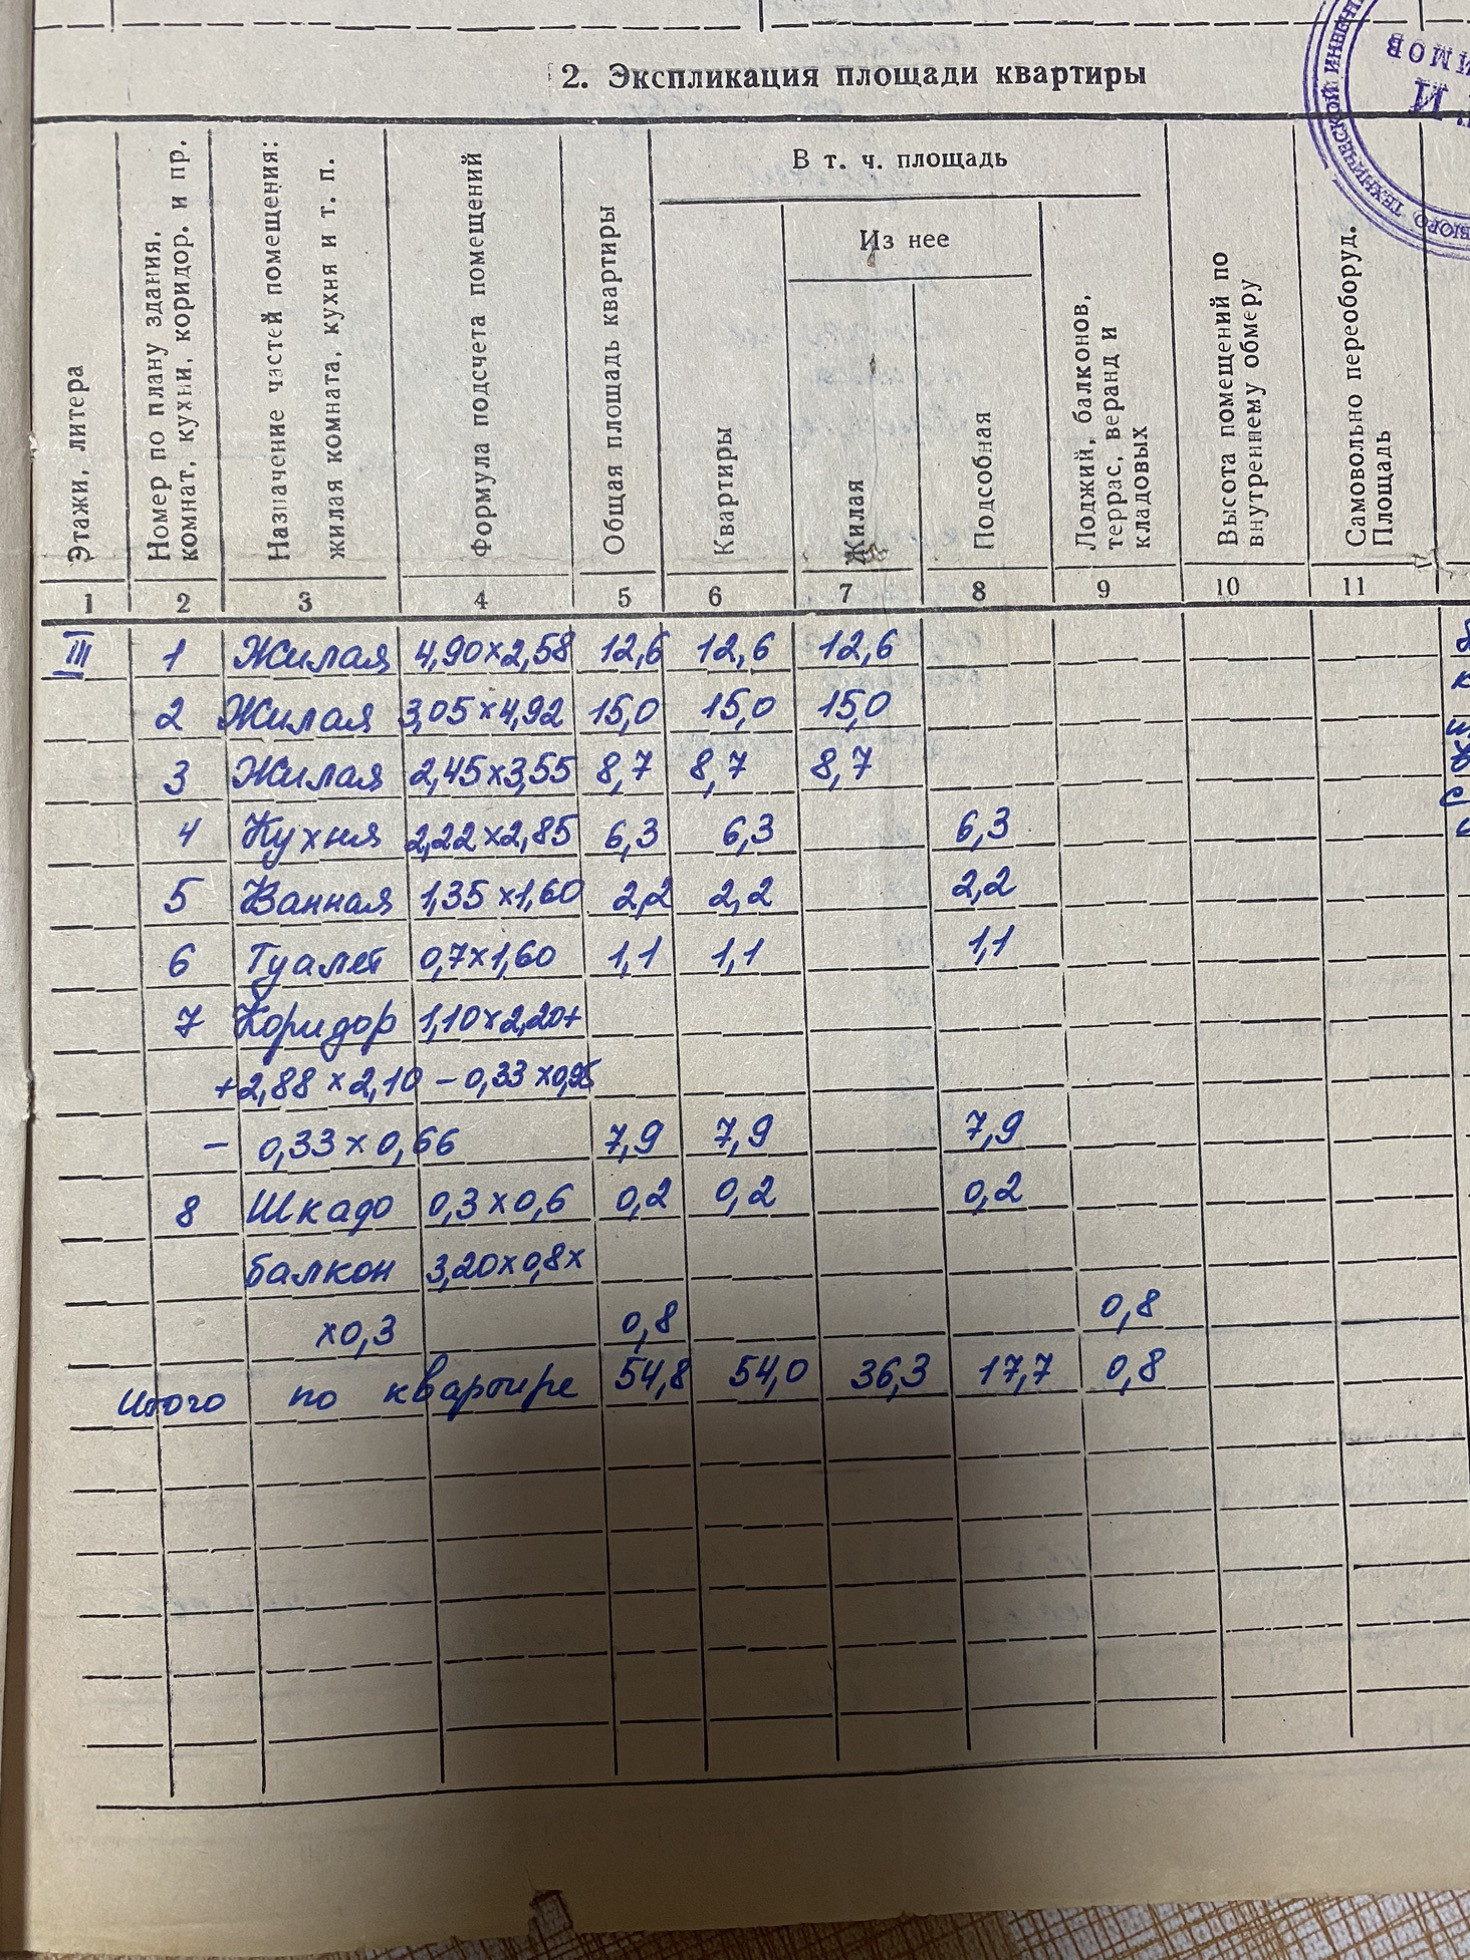 2. Экспликация площади квартиры
БЮРО ТЕХНИЧЕСКОЙ
Этажи, литера
Номер по плану здания, комнат, кухни, коридор. и пр.
Назначение частей помещения: жилая комната, кухня и т. п.
Формула подсчета помещений
Общая площадь квартиры
В т. ч. площадь
Квартиры
Из нее
Жилая
Подсобная
Лоджий, балконов, террас, веранд и кладовых
Высота помещений по внутреннему обмеру
Самовольно переоборуд. Площадь
1 2 3 4 5 6 7 8 9 10 11
III 1 Жилая 4,90×2,58 12,6 12,6 12,6
2 Жилая 3,05×4,92 15,0 15,0 15,0
3 Жилая 2,45×3,55 8,7 8,7 8,7
4 Кухня 2,22×2,85 6,3 6,3 6,3
5 Ванная 1,35×1,60 2,2 2,2 2,2
6 Туалет 0,7×1,60 1,1 1,1 1,1
7 Коридор 1,10×2,20+
+2,88×2,10 – 0,33×0,95
– 0,33×0,66 7,9 7,9 7,9
8 Шкаф 0,3×0,6 0,2 0,2 0,2
балкон 3,20×0,8×
×0,3 0,8 0,8
Итого по квартире 54,8 54,0 36,3 17,7 0,8